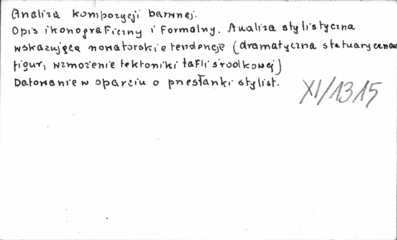 Analiza kompozycji barwnej.
Opis ikonograficzny i formalny. Analiza stylistyczna
wskazująca nowatorskie tendencje (dramatyczna statuaryczność
figur, wzmożenie tektoniki tafli środkowej)
Datowanie w oparciu o przesłanki stylist.
XI/1315